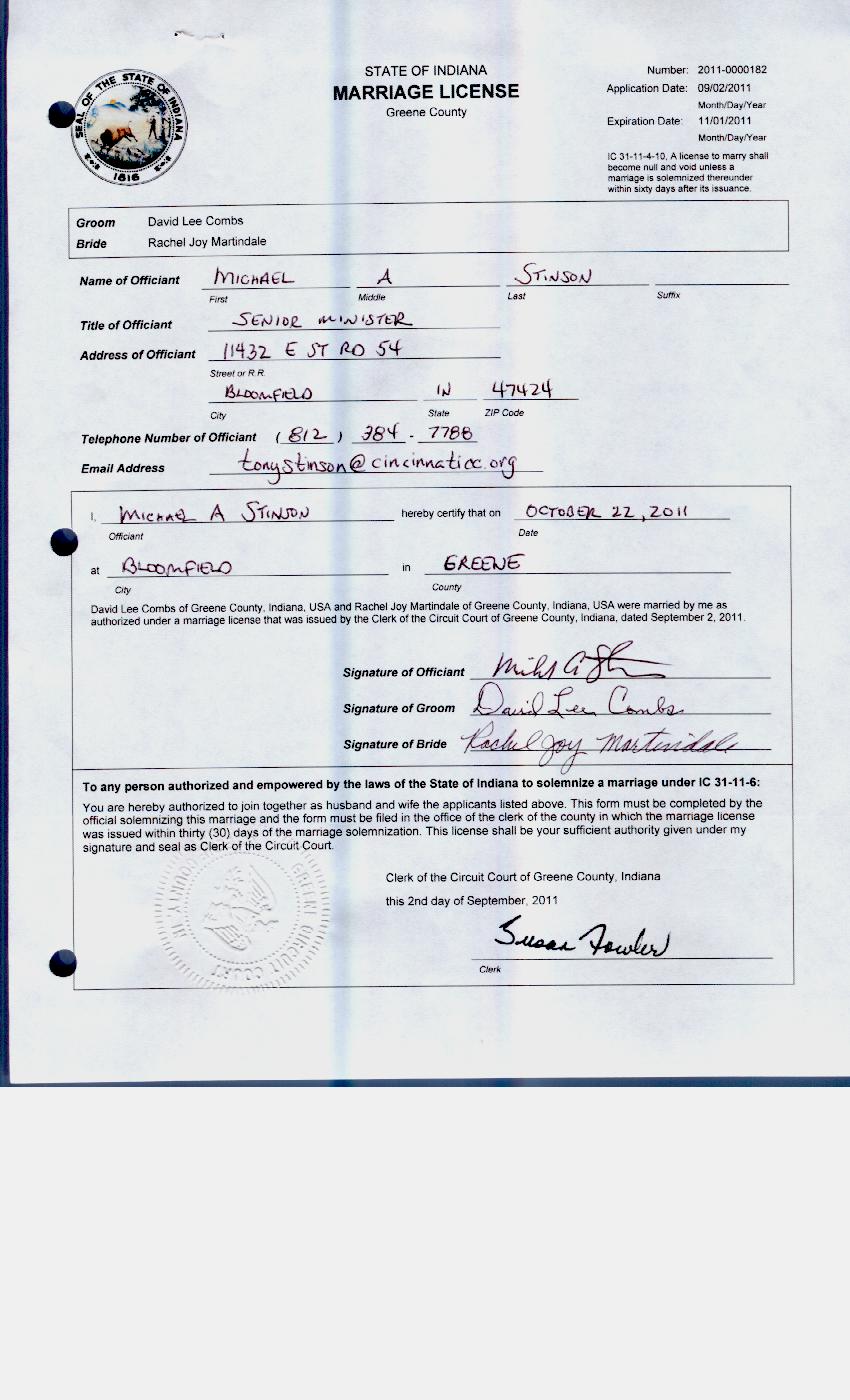 STATE OF INDIANA
MARRIAGE LICENSE
Greene County
Number: 2011-0000182
Application Date: 09/02/2011
Month/Day/Year
Expiration Date: 11/01/2011
Month/Day/Year
IC 31-11-4-10, A license to marry shall
become null and void unless a
marriage is solemnized thereunder
within sixty days after its issuance.
SEAL OF THE STATE OF INDIANA
1816
Groom David Lee Combs
Bride Rachel Joy Martindale
Name of Officiant MICHAEL A STINSON
First Middle Last Suffix
Title of Officiant SENIOR MINISTER
Address of Officiant 11432 E ST RD 54
Street or R.R.
BLOOMFIELD IN 47424
City State ZIP Code
Telephone Number of Officiant (812) 384-7788
Email Address tonystinson@cincinnaticc.org
I, MICHAEL A STINSON hereby certify that on OCTOBER 22, 2011
Officiant Date
at BLOOMFIELD in GREENE
City County
David Lee Combs of Greene County, Indiana, USA and Rachel Joy Martindale of Greene County, Indiana, USA were married by me as
authorized under a marriage license that was issued by the Clerk of the Circuit Court of Greene County, Indiana, dated September 2, 2011.
Signature of Officiant
Signature of Groom David Lee Combs
Signature of Bride Rachel Joy Martindale
To any person authorized and empowered by the laws of the State of Indiana to solemnize a marriage under IC 31-11-6:
You are hereby authorized to join together as husband and wife the applicants listed above. This form must be completed by the
official solemnizing this marriage and the form must be filed in the office of the clerk of the county in which the marriage license
was issued within thirty (30) days of the marriage solemnization. This license shall be your sufficient authority given under my
signature and seal as Clerk of the Circuit Court.
Clerk of the Circuit Court of Greene County, Indiana
this 2nd day of September, 2011
Susan Fowler
Clerk
GREENE CIRCUIT COURT